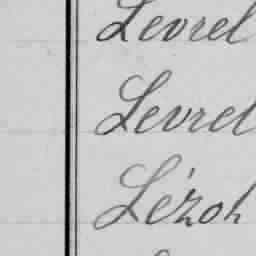 Levrel
Levrel
Lézoh